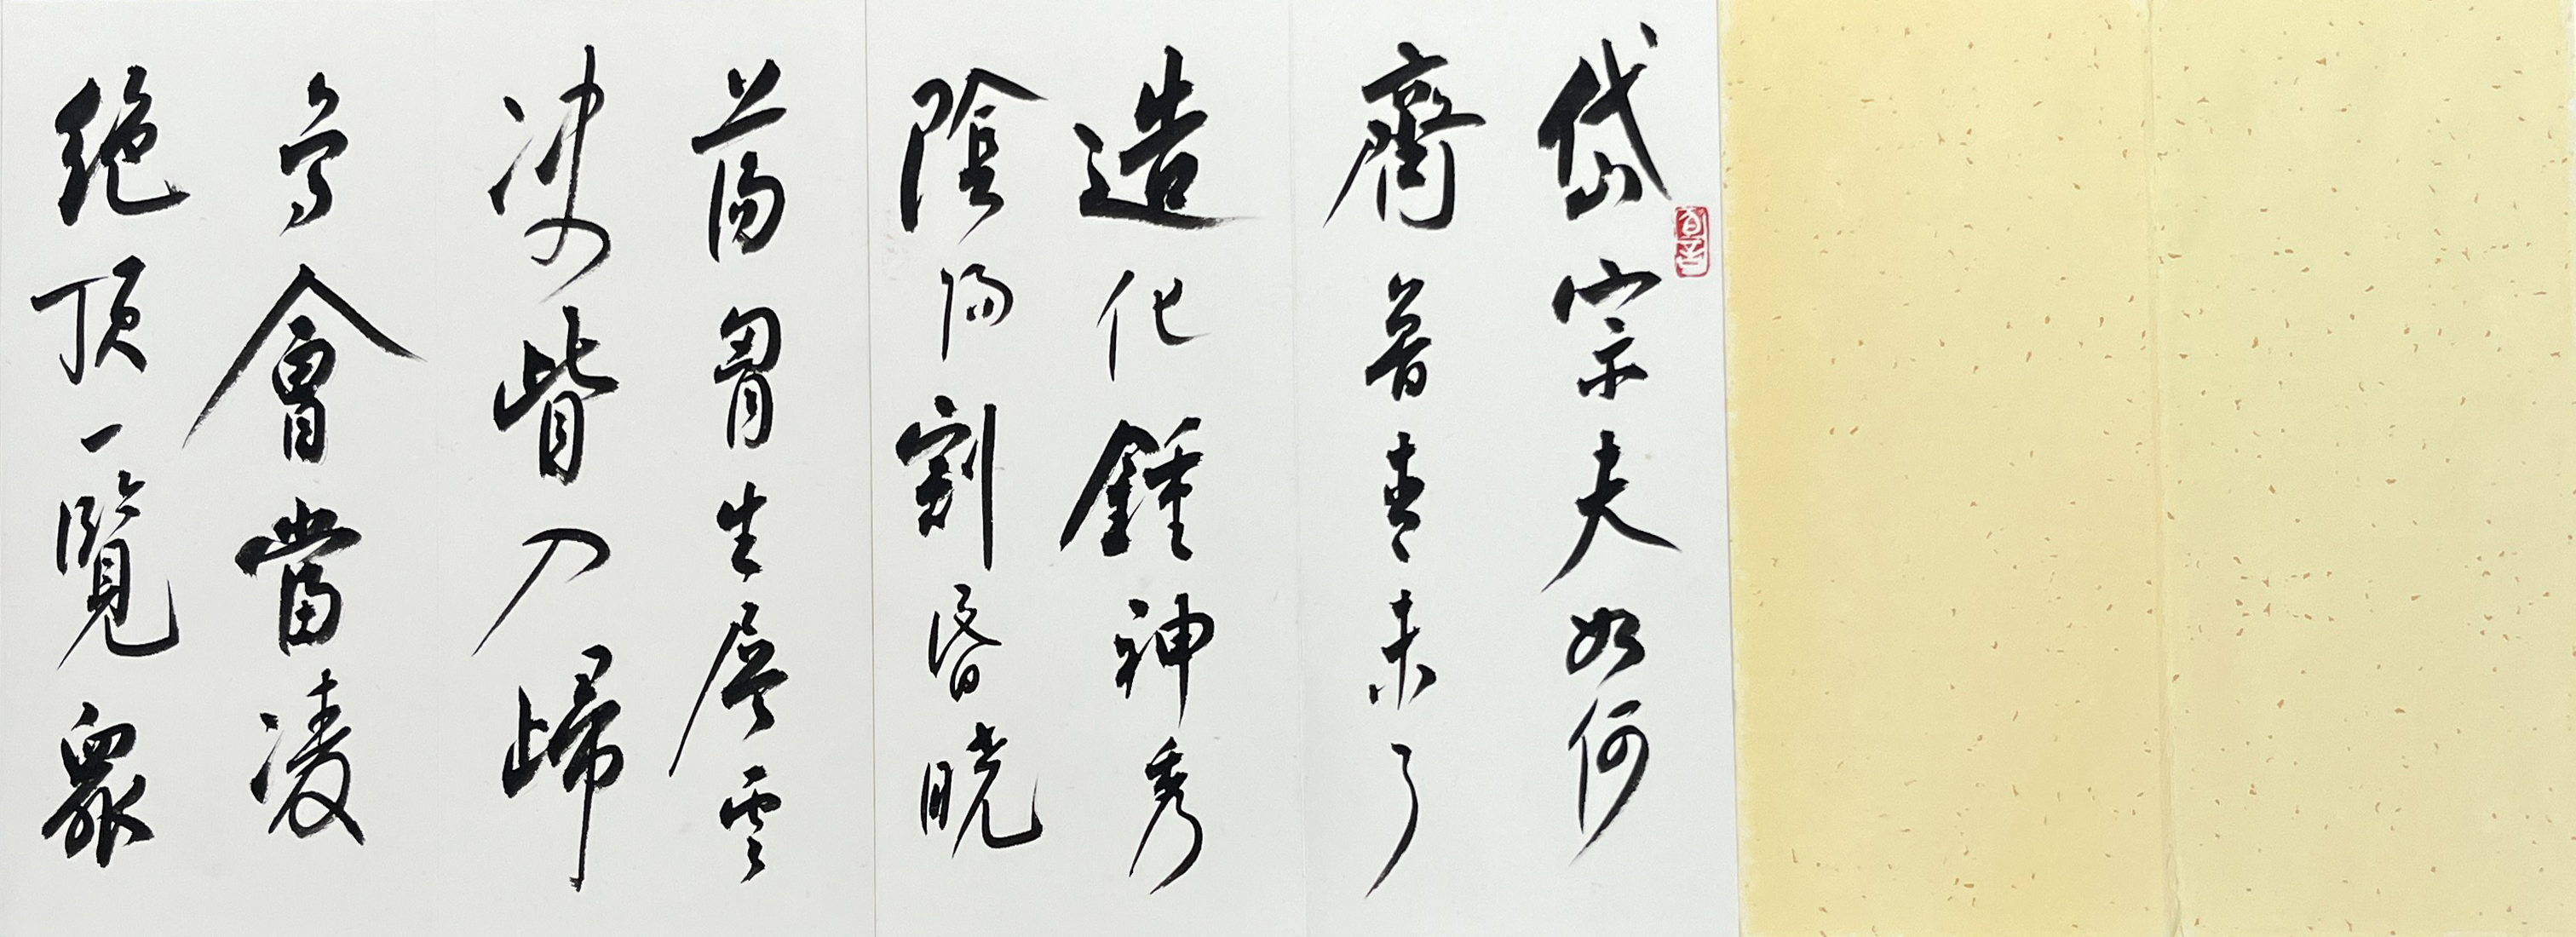 岱宗夫如何
齊魯青未了
造化鍾神秀
陰陽割昏曉
蕩胷生層雲
決眥入歸
鳥會當凌
絕頂一覽眾